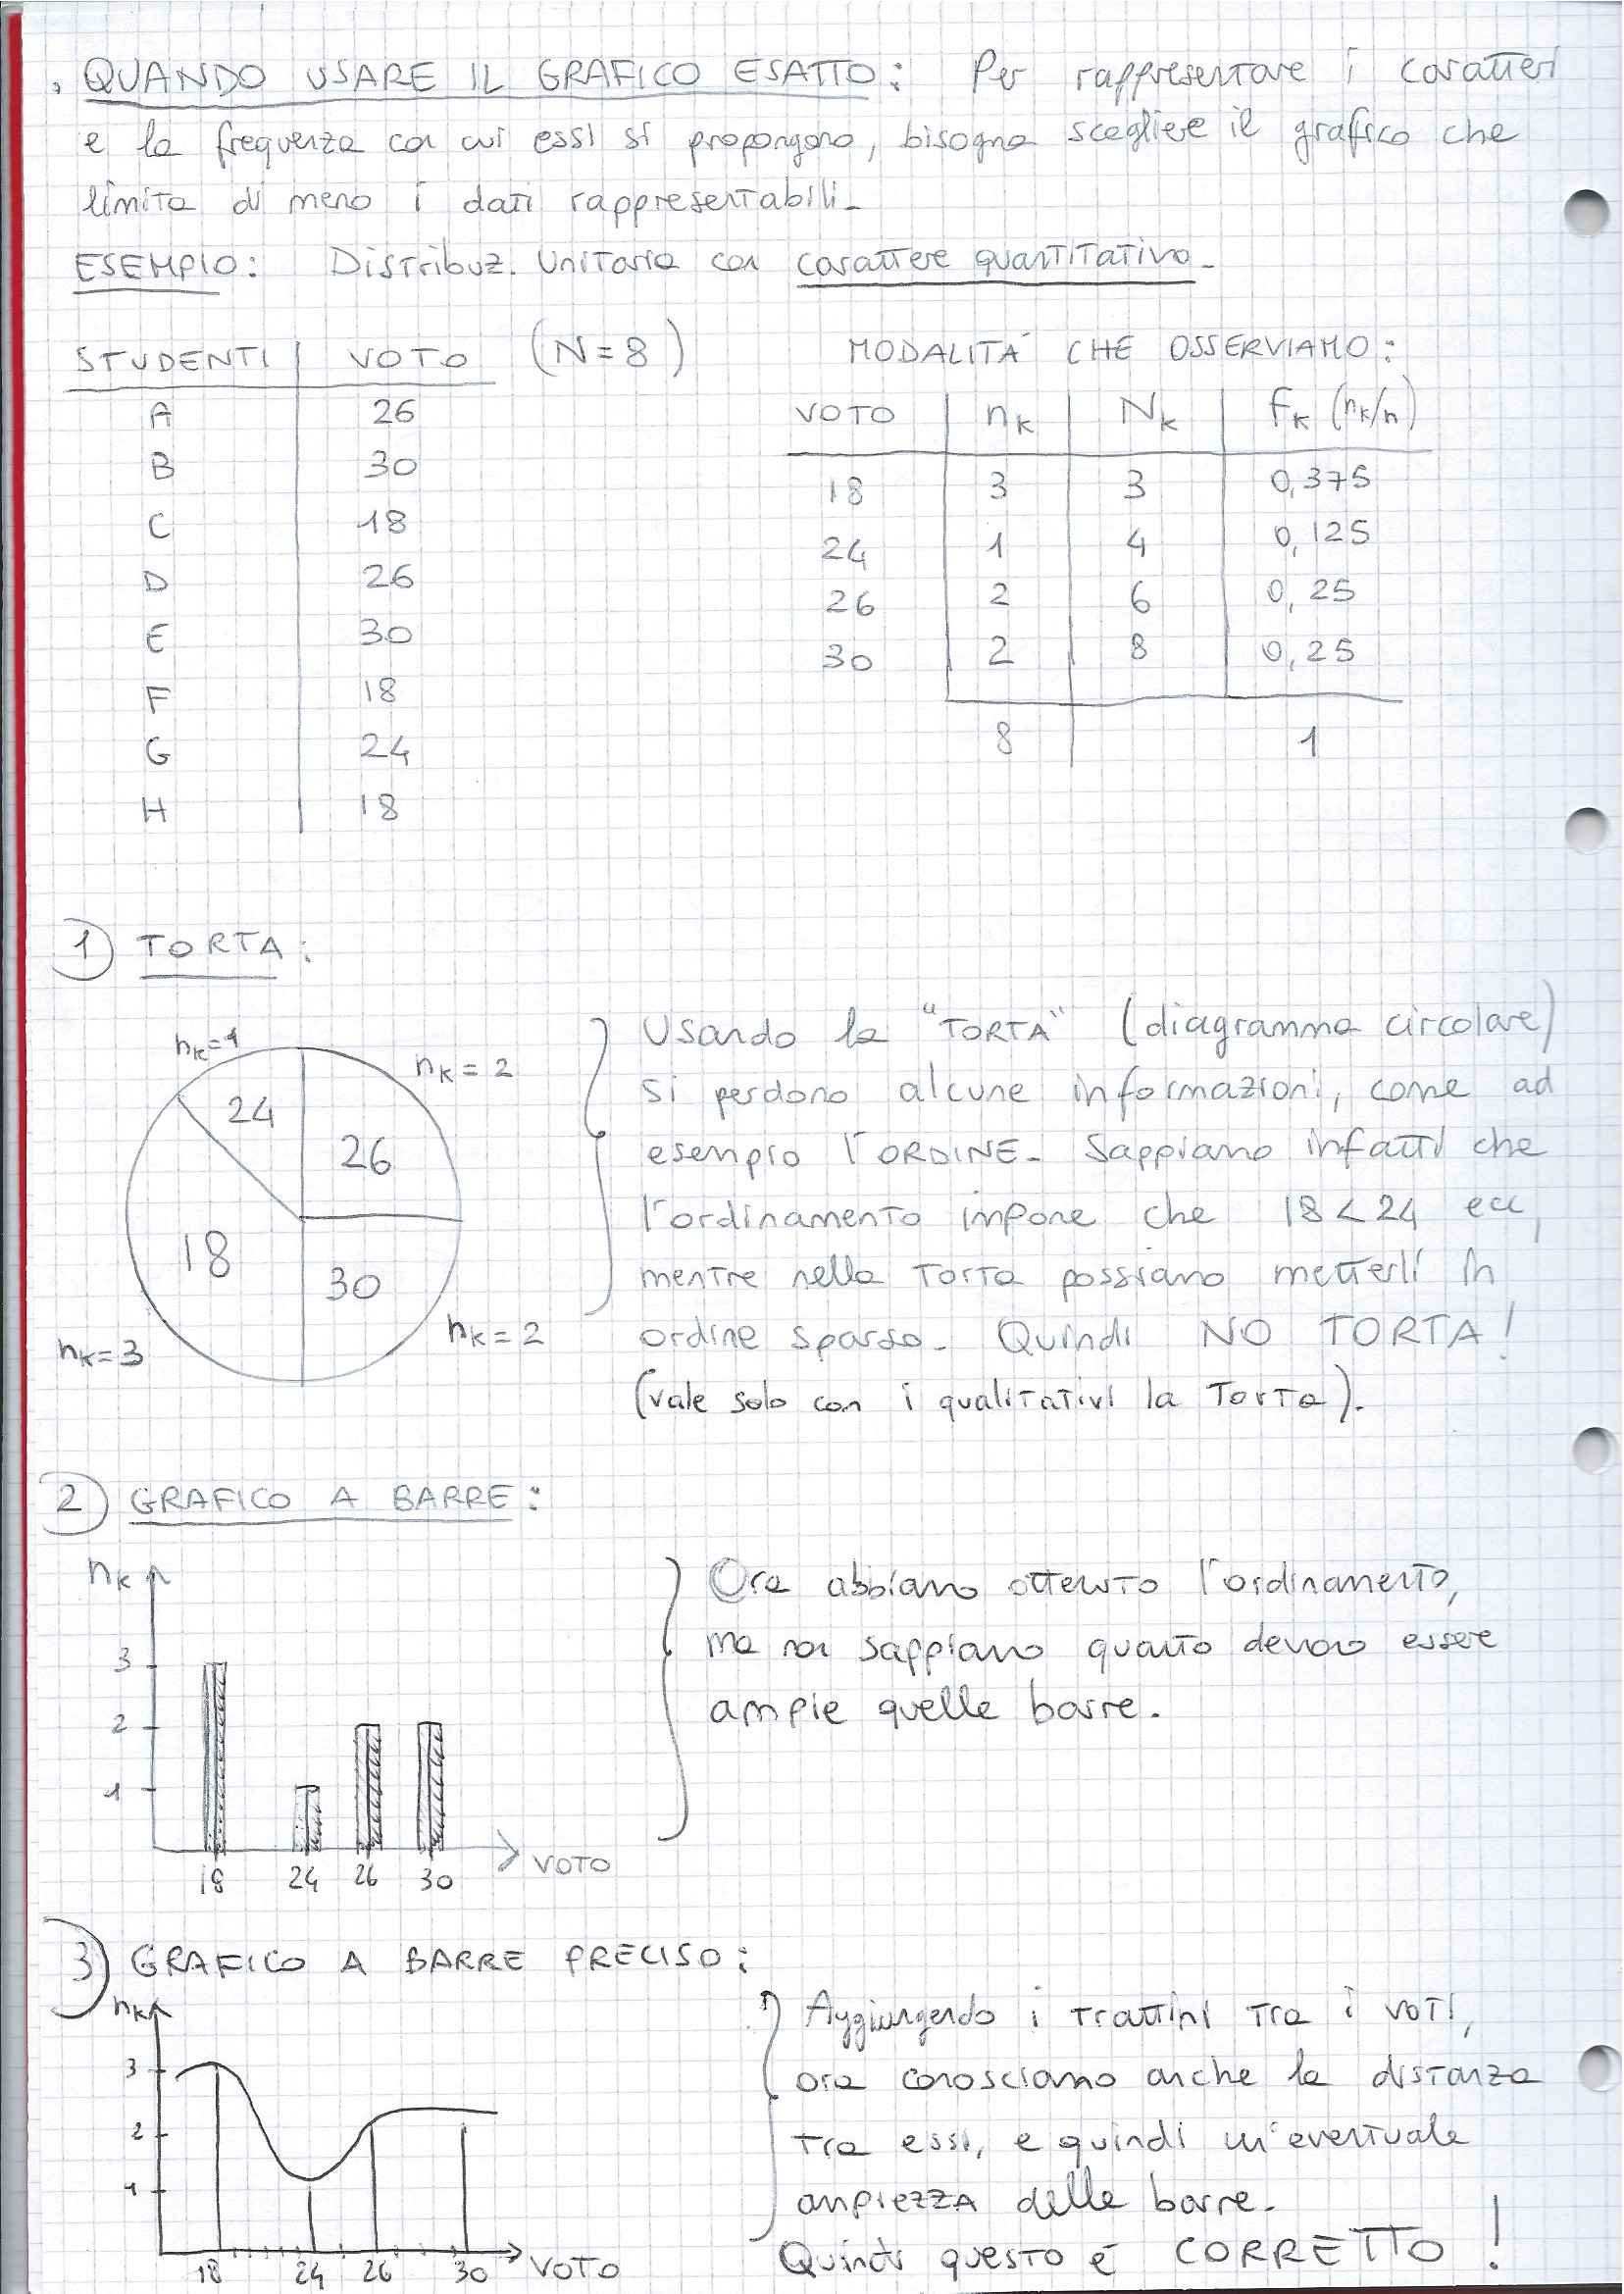 . QUANDO USARE IL GRAFICO ESATTO: Per rappresentare i caratteri
e la frequenza con cui essi si propongono, bisogna scegliere il grafico che
limita di meno i dati rappresentabili.
ESEMPIO: Distribuz. Unitaria con carattere quantitativo.
STUDENTI VOTO (N=8)
A 26
B 30
C 18
D 26
E 30
F 18
G 24
H 18
MODALITÁ CHE OSSERVIAMO:
VOTO nk Nk Fk (nk/n)
18 3 3 0,375
24 1 4 0,125
26 2 6 0,25
30 2 8 0,25
8 1
1) TORTA:
nk=1
nk=2
24
26
18
30
nk=3
nk=2
Usando la "TORTA" (diagramma circolare)
si perdono alcune informazioni, come ad
esempio l'ORDINE. Sappiamo infatti che
l'ordinamento impone che 18<24 ecc,
mentre nella torta possiamo metterli in
ordine sparso. Quindi NO TORTA!
(vale solo con i qualitativi la torta).
2) GRAFICO A BARRE:
nk
3
2
1
18 24 26 30 VOTO
Ora abbiamo ottenuto l'ordinamento,
ma non sappiamo quanto devono essere
ampie quelle barre.
3) GRAFICO A BARRE PRECISO:
nk
3
2
1
18 24 26 30 VOTO
Aggiungendo i trattini tra i voti,
ora conosciamo anche la distanza
tra essi, e quindi un'eventuale
ampiezza delle barre.
Quindi questo é CORRETTO!